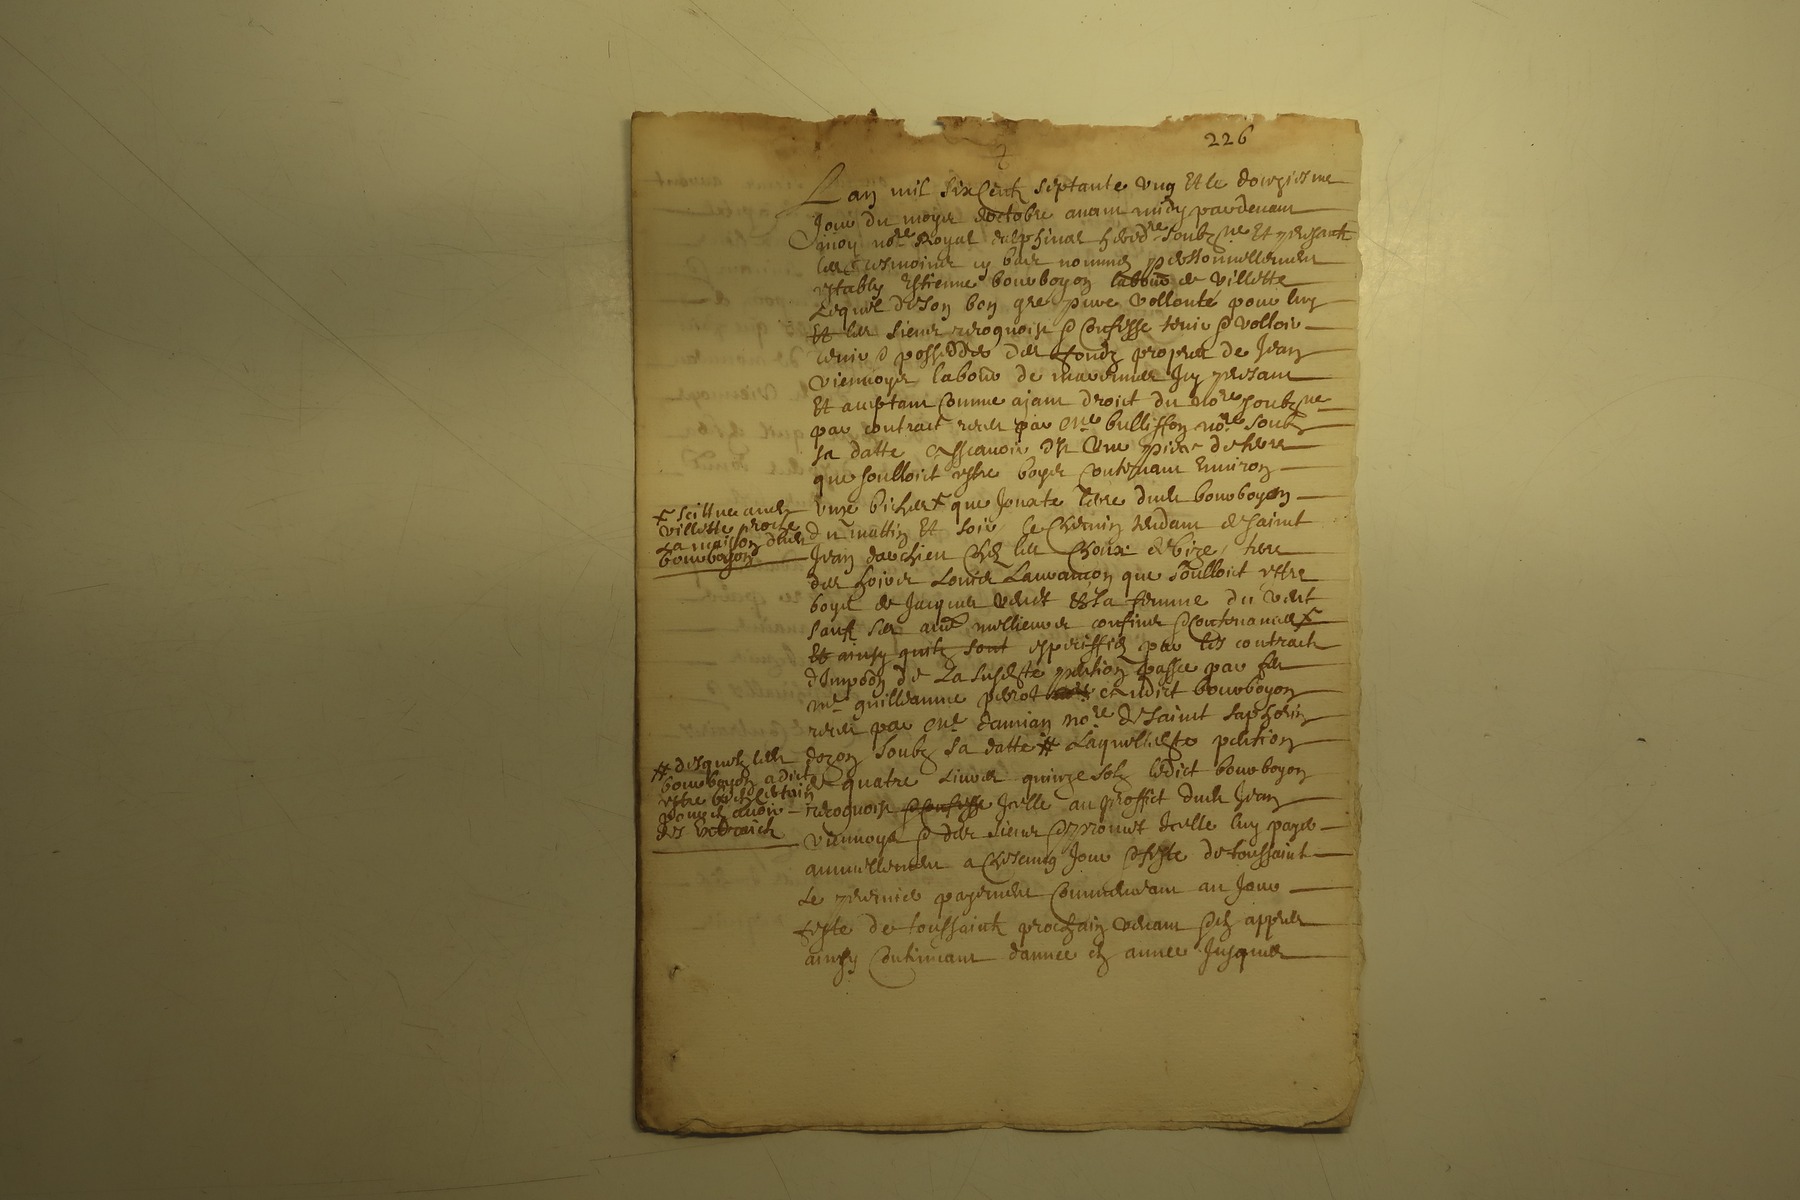 226
Lan mil six Centz septante ung Et le douziesme
Jour du moys doctobre avant midy pardevant
moy nore Royal dalphinal hered.re soubz.ne Et presantz
les tesmoins cy bas nommes personnellement
estably Estienne bourboyon labour de villette
Lequel de son bon gre pure vollonté pour luy
Et les siens recognoist & Confesse tenir & volloir
tenir & posseder des fondz propres de Jean
viennoys labour de Jcy presant
Et acceptant Comme ajant droict du nore soubz.ne
par contract receu par me bullisson nore soubz
sa datte asscavoir une piece de terre
que soulloict estre boys Contenant Environ
une bicheré que Jouxte terre dudt bourboyon
du mattin Et soir le Chemin tendant de saint
Jean chez les de bize terre
des hoirs Louis que soulloict estre
boys de Jacques & sa femme du vent
sauf ses aultres meilleurs confins & Contenances
Et ainsy quilz sont especiffies par les contractz
de La susdte pention passe par feu
me guilleaume perrot audict bourboyon
receu par me damian nore de saint saphorin
dozon soubz sa datte # Laquelle pention
de quatre Livres quinze solz ledict bourboyon
recognoist & Confesse Jcelle au proffict dudt Jean
viennoys & des siens & promet Jcelle luy payer
annuellement a Chescung Jour & feste de toussaint
Le premier payement Commencant au Jour
feste de toussaintz prochain venant & appres
ainsy Continuant dannee en annee Jusques
scittuee audt
villette proche
La maison dudt
bourboyon
# desquelz ledt
bourboyon a dict
estre certain
avoir
des extraictz